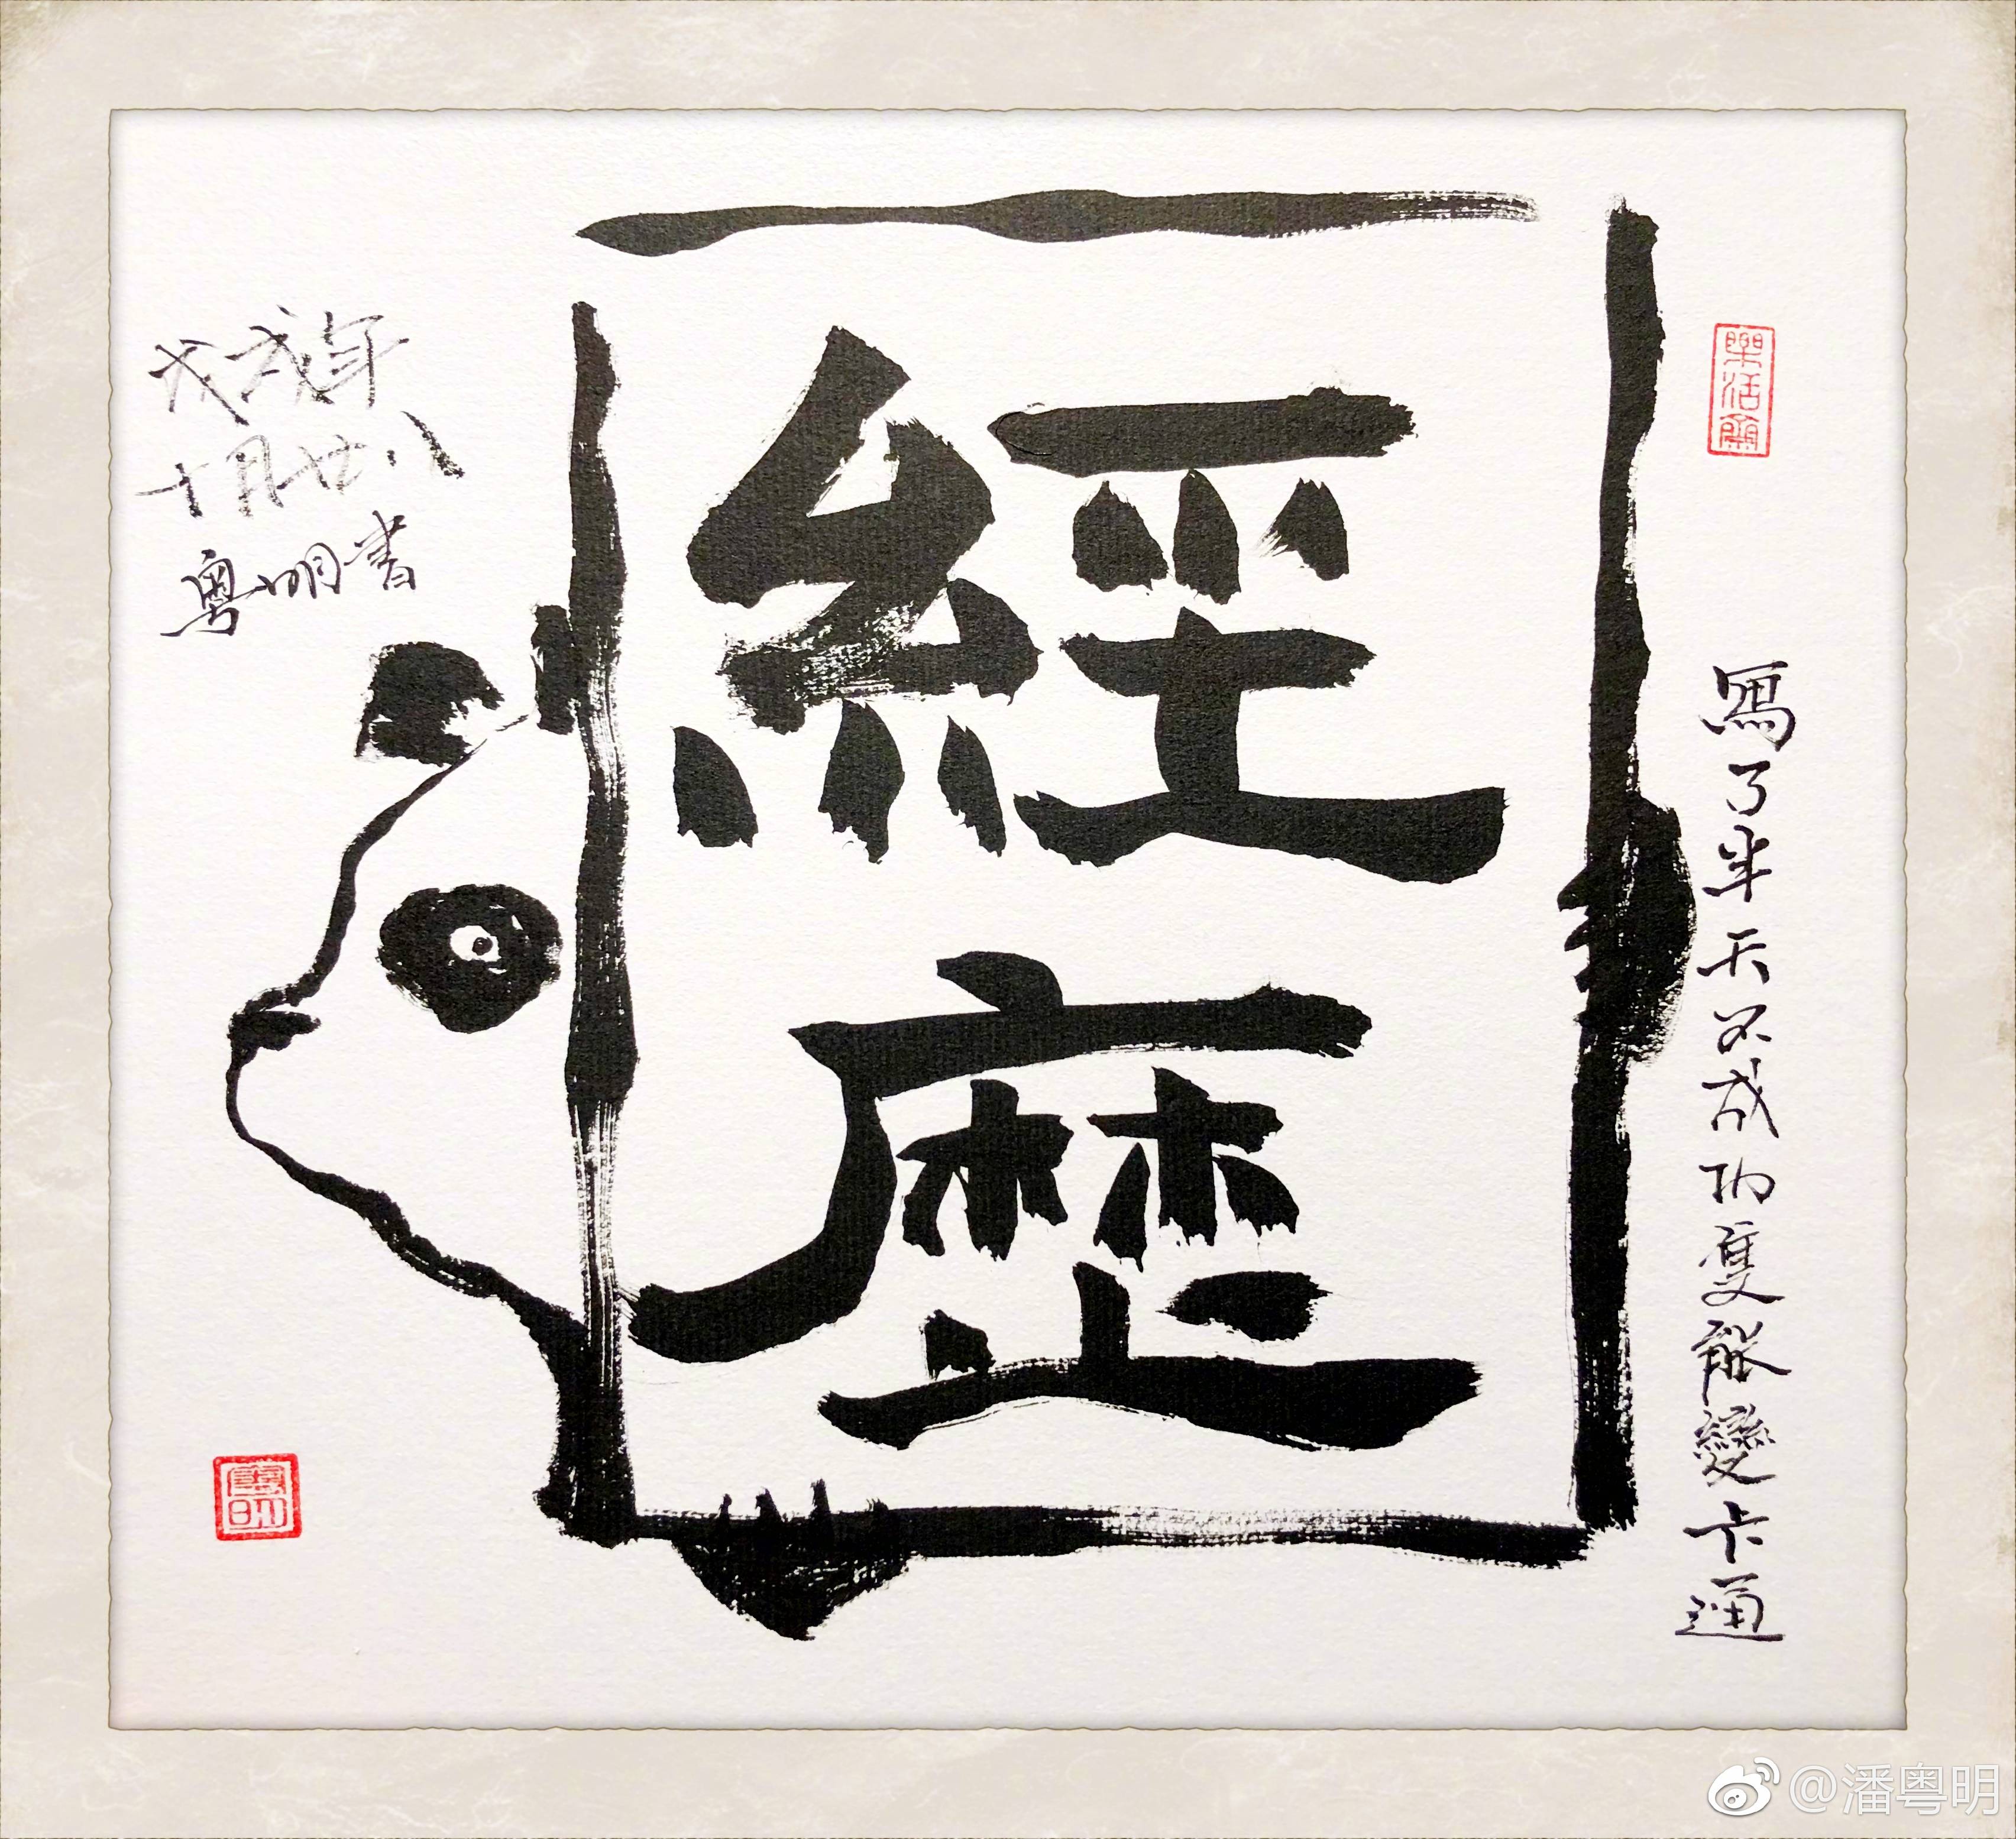 樂活
寫了半天不成功隻能變卡通
經
歷
戊戌年
十月廿八
粵明書
粵明
@潘粤明